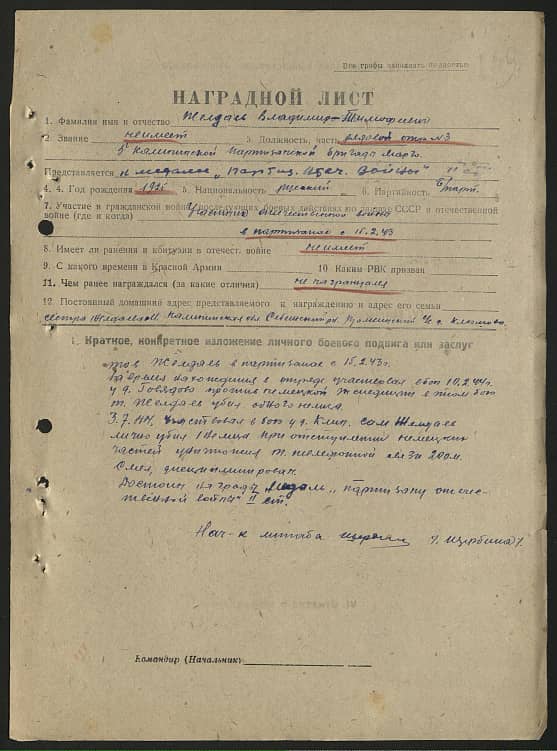 Все графы заполнять полностью
НАГРАДНОЙ ЛИСТ
1. Фамилия имя и отчество Желдаев Владимир Тимофеевич
2. Звание неимеет 3. Должность, часть рядовой отр. №3
5 Калининской партизанской бригады
Представляется к медали „Партиз. Отеч. Войны" II ст.
4. 4. Год рождения 1925 5. Национальность русский 6. Партийность б/парт.
7. Участие в гражданской войне, последующих боевых действиях по защите СССР и отечественной
войне (где и когда) Участник отечественной войны
в партизанах с 15.2.43
8. Имеет ли ранения и контузии в отечест. войне неимеет
9. С какого времени в Красной Армии 10 Каким РВК призван
11. Чем ранее награждался (за какие отличия) не награждался
12. Постоянный домашний адрес представляемого к награждению и адрес его семьи
сестра Калининская обл.
1. Краткое, конкретное изложение личного боевого подвига или заслуг
тов Желдаев в партизанах с 15.2.43г.
За время нахождения в отряде участвовал в бою 10.2.44г
у д. Говядово против немецкой экспедиции в этом бою
т. Желдаев убил одного немца.
3.7.44. Участвовал в бою у д. Клип. сам Желдаев
лично убил 1 немца при отступлении немецких
частей уничтожил т. телефонной связи 200м.
Смел, дисциплинирован.
Достоин награды медаль „партизану отече-
ственной войны" II ст.
Нач-к штаба /Щербина/.
Командир (Начальник)